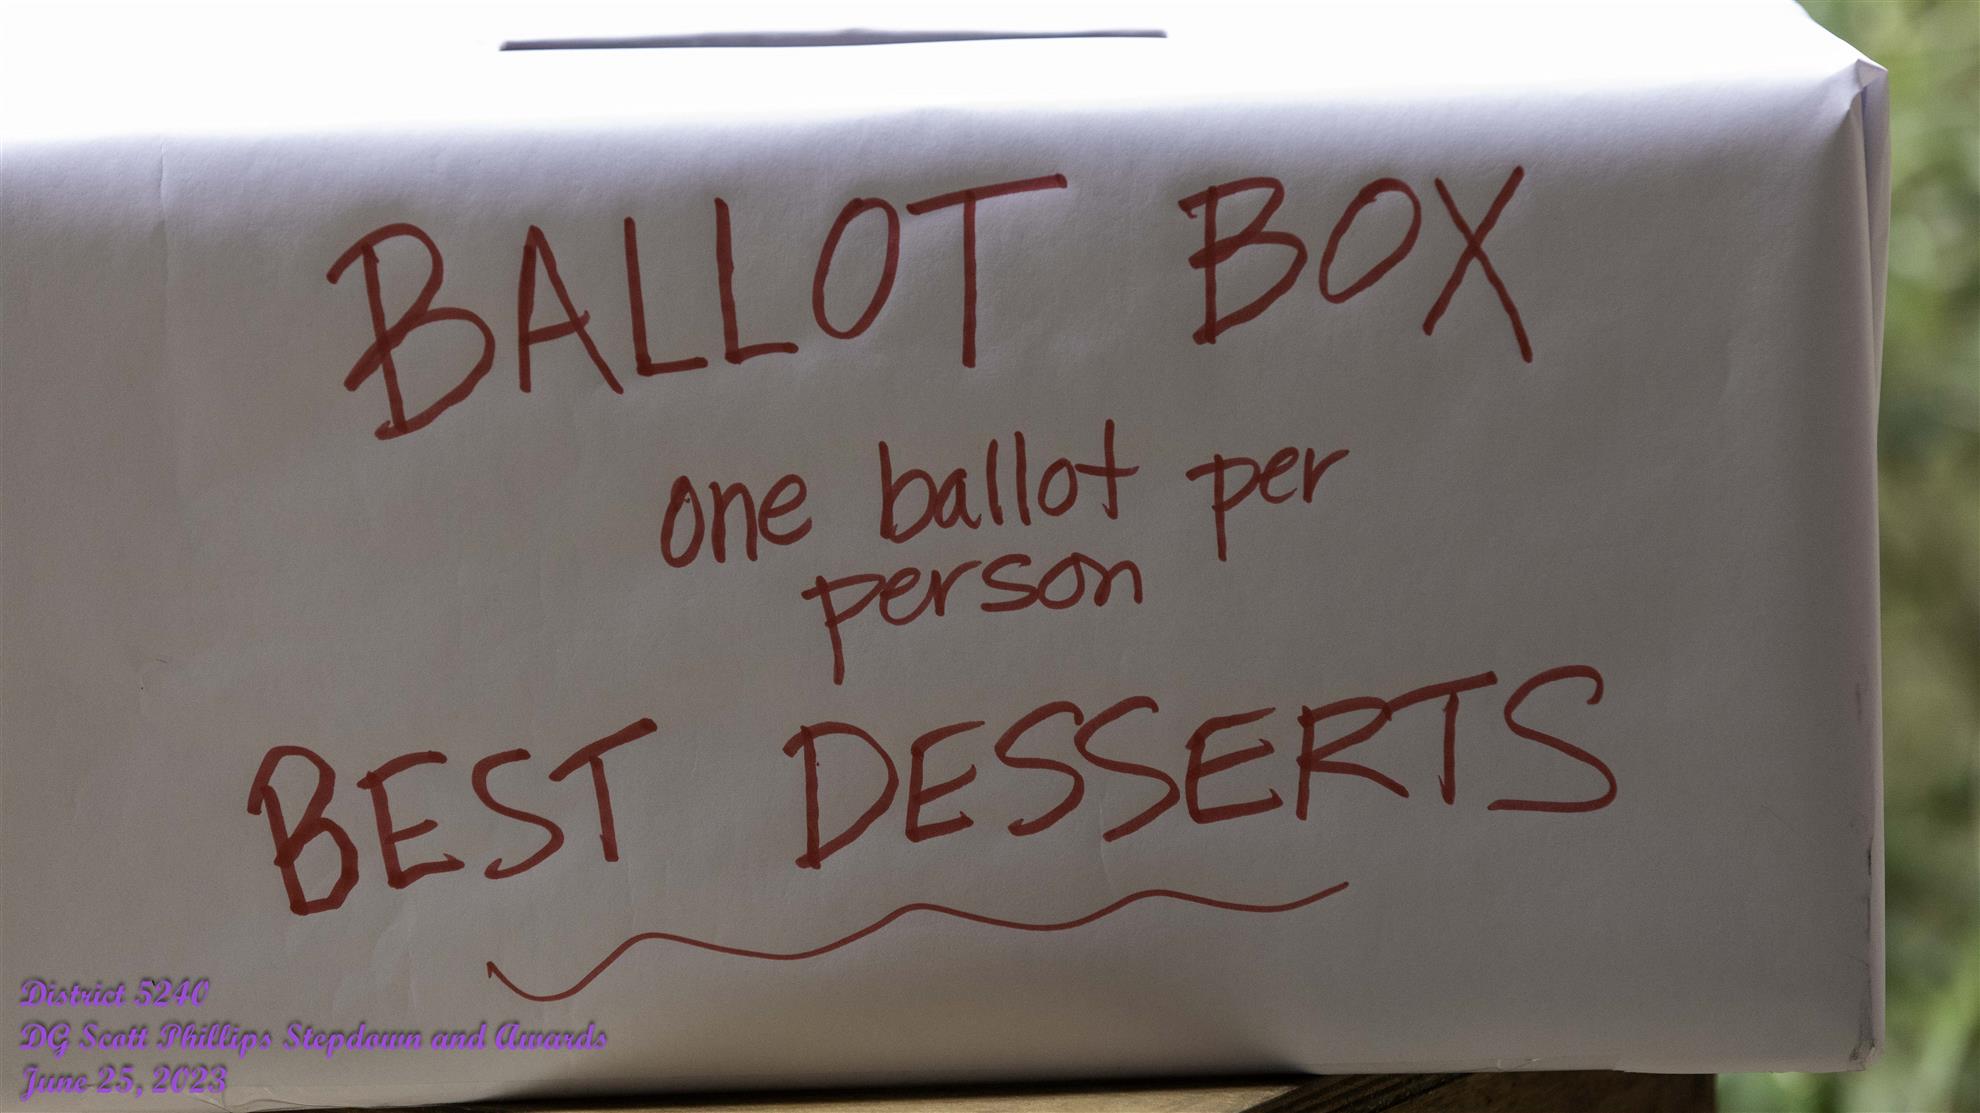 BALLOT BOX
one ballot per
person
BEST DESSERTS
District 5240
DG Scott Phillips Stepdown and Awards
June 25, 2023